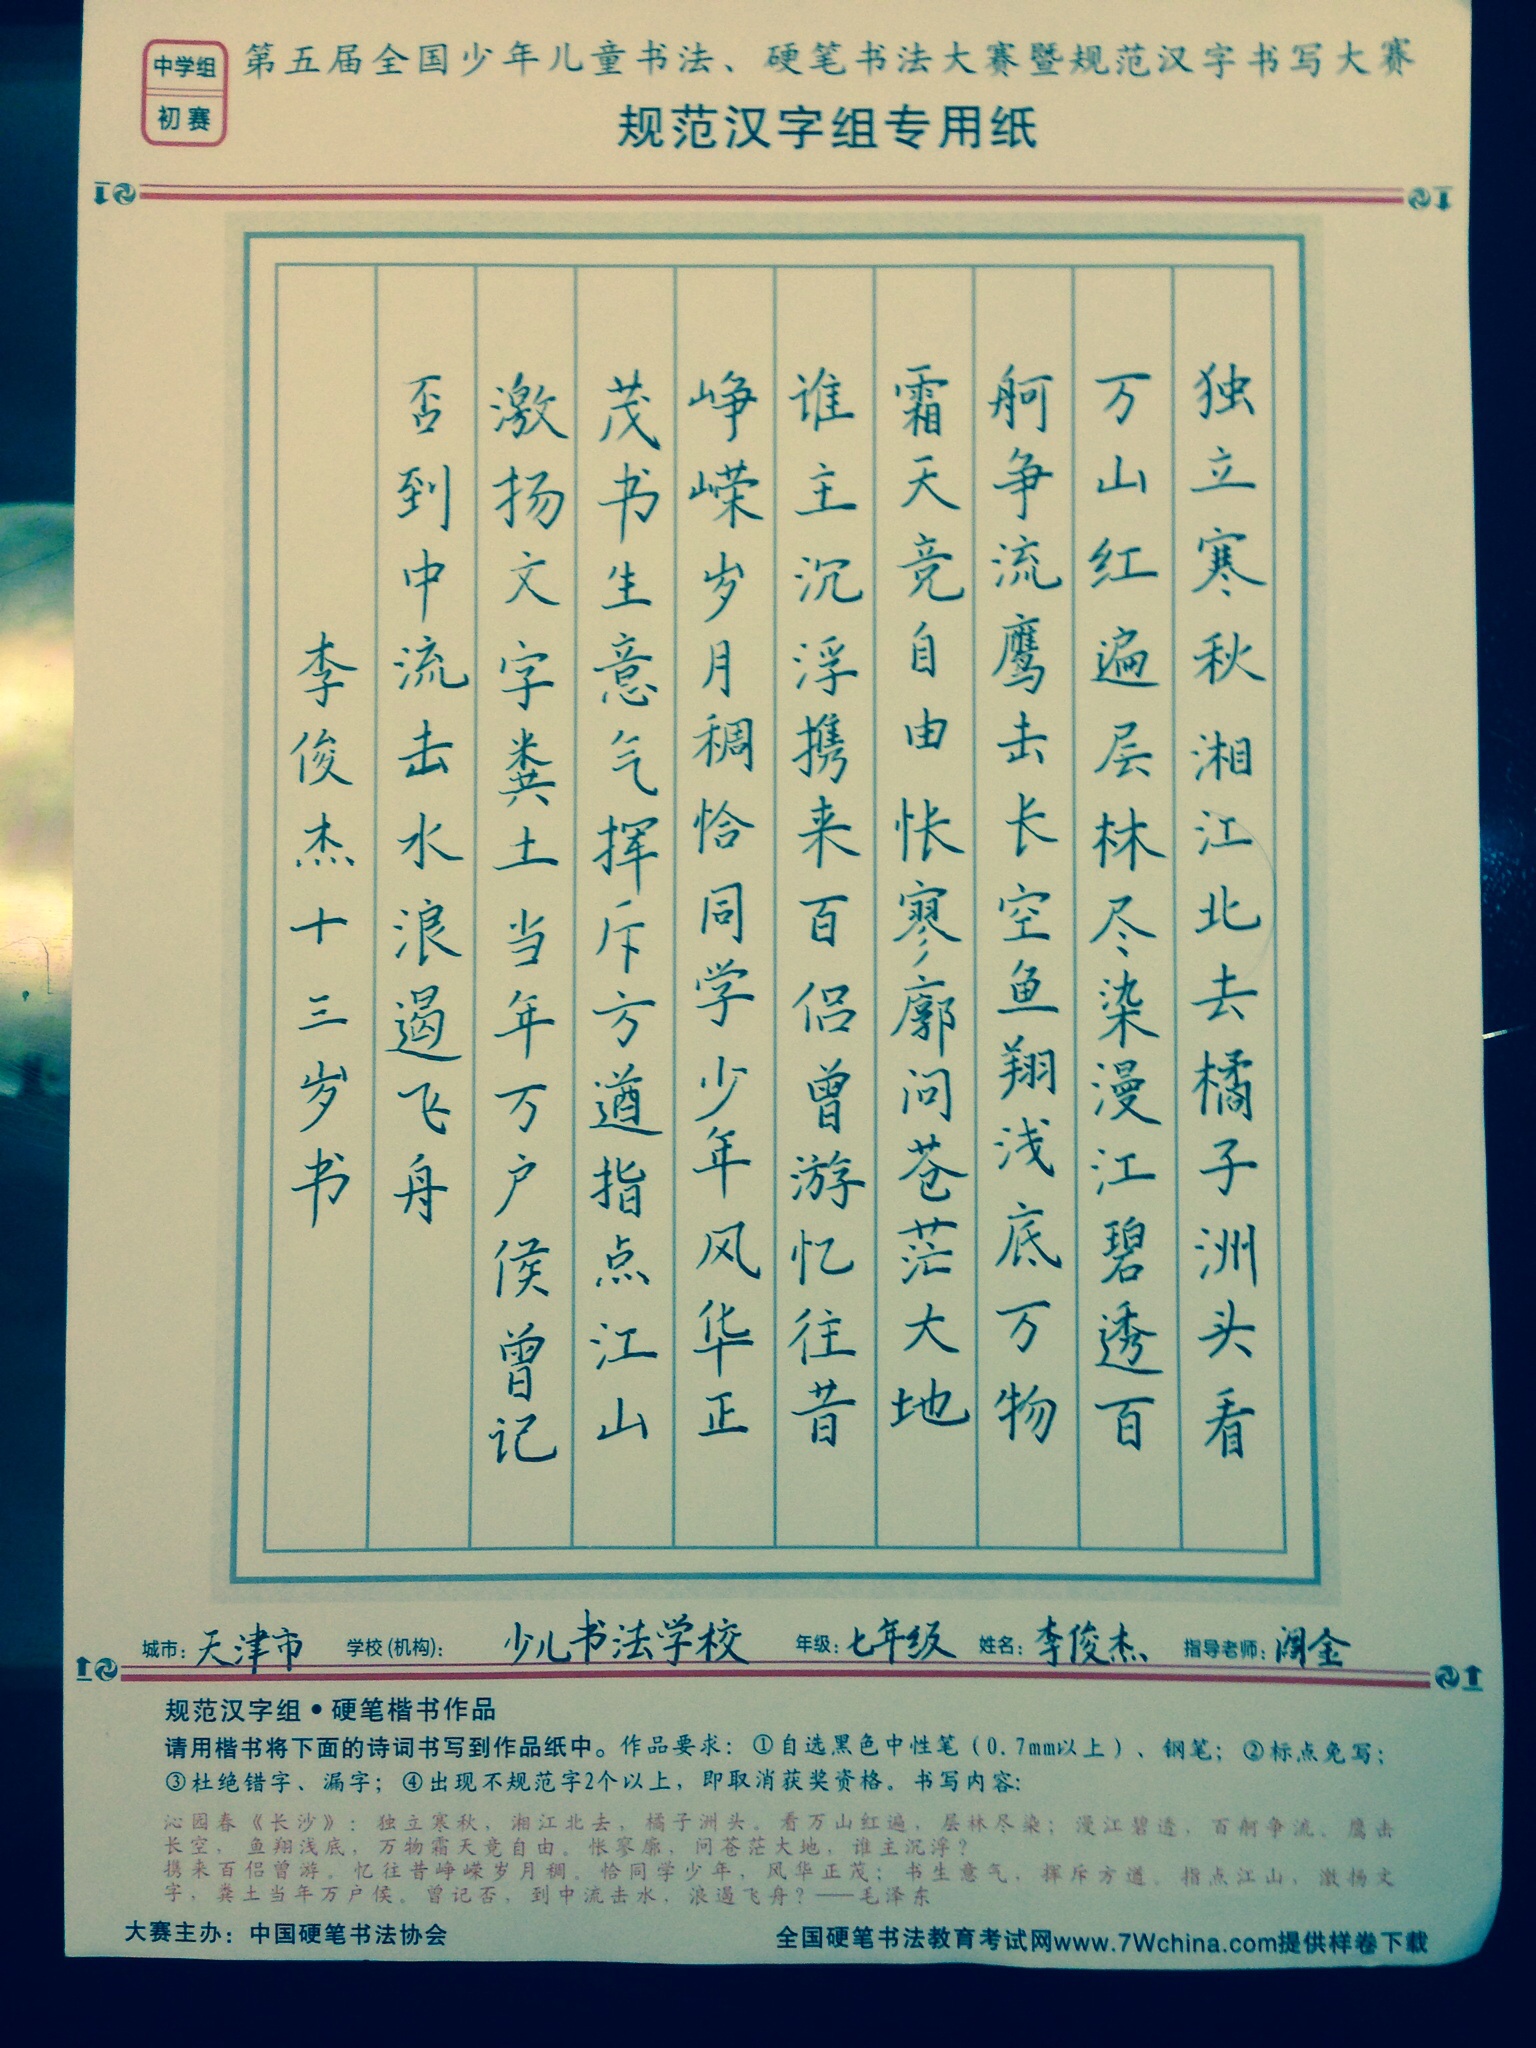 中学组
初赛
第五届全国少年儿童书法、硬笔书法大赛暨规范汉字书写大赛
规范汉字组专用纸
独立寒秋湘江北去橘子洲头看
万山红遍层林尽染漫江碧透百
舸争流鹰击长空鱼翔浅底万物
霜天竞自由怅寥廓问苍茫大地
谁主沉浮携来百侣曾游忆往昔
峥嵘岁月稠恰同学少年风华正
茂书生意气挥斥方遒指点江山
激扬文字粪土当年万户侯曾记
否到中流击水浪遏飞舟
李俊杰十三岁书
城市：天津市 学校(机构)：少儿书法学校 年级：七年级 姓名：李俊杰 指导老师：阎金
规范汉字组•硬笔楷书作品
请用楷书将下面的诗词书写到作品纸中。作品要求：①自选黑色中性笔（0.7mm以上）、钢笔；②标点免写；
③杜绝错字、漏字；④出现不规范字2个以上，即取消获奖资格。书写内容：
沁园春《长沙》：独立寒秋，湘江北去，橘子洲头。看万山红遍，层林尽染；漫江碧透，百舸争流。鹰击
长空，鱼翔浅底，万物霜天竞自由。怅寥廓，问苍茫大地，谁主沉浮？
携来百侣曾游。忆往昔峥嵘岁月稠。恰同学少年，风华正茂；书生意气，挥斥方遒。指点江山，激扬文
字，粪土当年万户侯。曾记否，到中流击水，浪遏飞舟？——毛泽东
大赛主办：中国硬笔书法协会
全国硬笔书法教育考试网www.7Wchina.com提供样卷下载